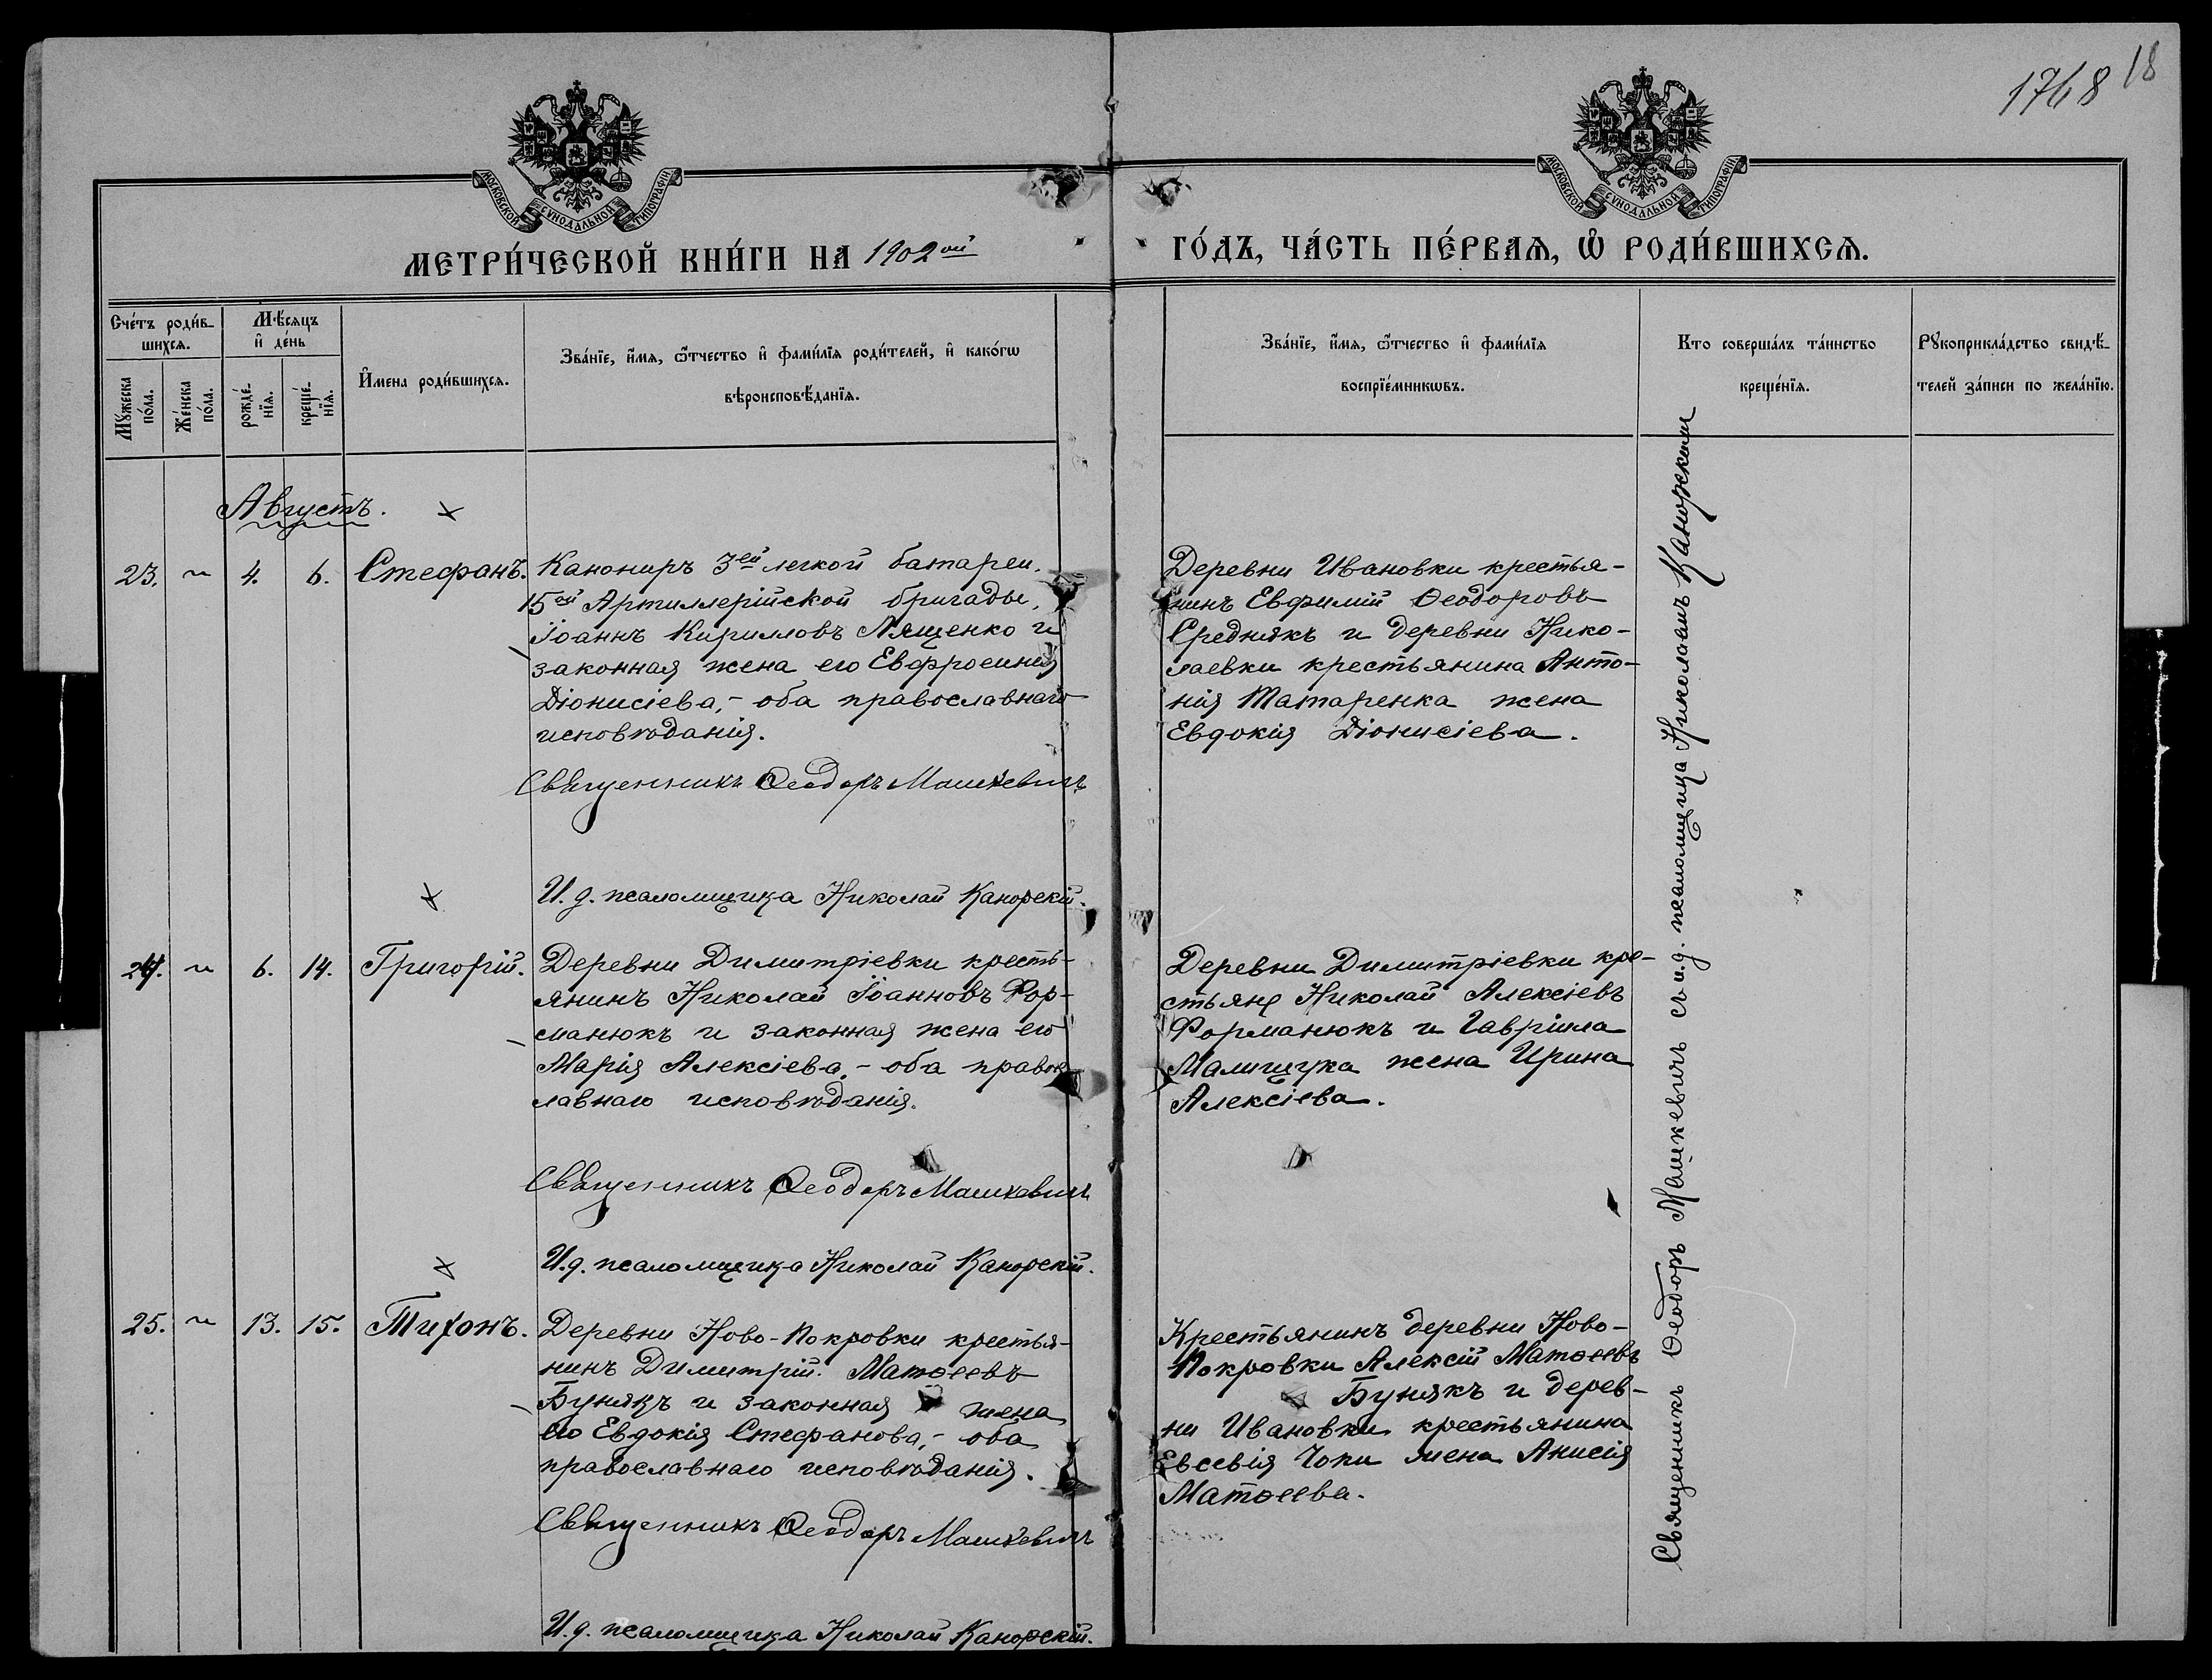 1768 18
МОСКОВСКОЙ СѴНОДАЛЬНОЙ ТИПОГРАФІИ
МОСКОВСКОЙ СѴНОДАЛЬНОЙ ТИПОГРАФІИ
МЕТРИ́ЧЕСКОЙ КНИ́ГИ НА 1902ой
ГО́ДЪ, ЧА́СТЬ ПЕ́РВАѦ, Ѽ РОДИ́ВШИХСѦ.
Сче́тъ роди́в-
шихсѧ.
Мꙋ́жеска
по́ла.
Же́нска
по́ла.
Мѣ́сѧцъ
и҆ де́нь
рожде́-
нїѧ.
креще́-
нїѧ.
И҆мена роди́вшихсѧ.
Зва́нїе, и҆́мѧ, ѻ҆́тчество и҆ фами́лїѧ роди́телей, и҆ како́гѡ
вѣроисповѣ́данїѧ.
Зва́нїе, и҆́мѧ, ѻ҆́тчество и҆ фами́лїѧ
воспрїе́мникѡвъ.
Кто соверша́лъ та́инство
креще́нїѧ.
Рꙋкоприкла́дство свидѣ́-
телей за́писи по жела́нїю.
Августъ.
23. " 4. 6. Стефанъ.
Канониръ 3ей легкой батареи,
15ой Артиллерійской бригады,
Іоаннъ Кирилловъ Лященко и
законная жена его Евфросинія
Діонисіева,- оба православнаго
исповѣданія.
Священникъ Ѳеодоръ Машкевичъ
И. д. псаломщика Николай Канорскій.
Деревни Ивановки крестья-
нинъ Евфимій Ѳеодоровъ
Среднякъ и деревни Нико-
лаевки крестьянина Анто-
нія Татаренка жена
Евдокія Діонисіева.
24. " 6. 14. Григорій.
Деревни Димитріевки кресть-
янинъ Николай Іоанновъ Фор-
манюкъ и законная жена его
Марія Алексіева,- оба правос-
лавнаго исповѣданія.
Священникъ Ѳеодоръ Машкевичъ
И. д. псаломщика Николай Канорскій.
Деревни Димитріевки кре-
стьяне Николай Алексіевъ
Форманюкъ и Гавріила
жена Ирина
Алексіева.
25. " 13. 15. Тихонъ.
Деревни Ново-Покровки крестья-
нинъ Димитрій Матѳеевъ
Бунякъ и законная жена
его Евдокія Стефанова,- оба
православнаго исповѣданія.
Священникъ Ѳеодоръ Машкевичъ
И. д. псаломщика Николай Канорскій.
Крестьянинъ деревни Ново-
Покровки Алексій Матѳеевъ
Бунякъ и дерев-
ни Ивановки крестьянина
Евсевія Чопи жена Анисія
Матѳеева.
Священникъ Ѳеодоръ Машкевичъ съ и. д. псаломщика Николаемъ Канорскимъ